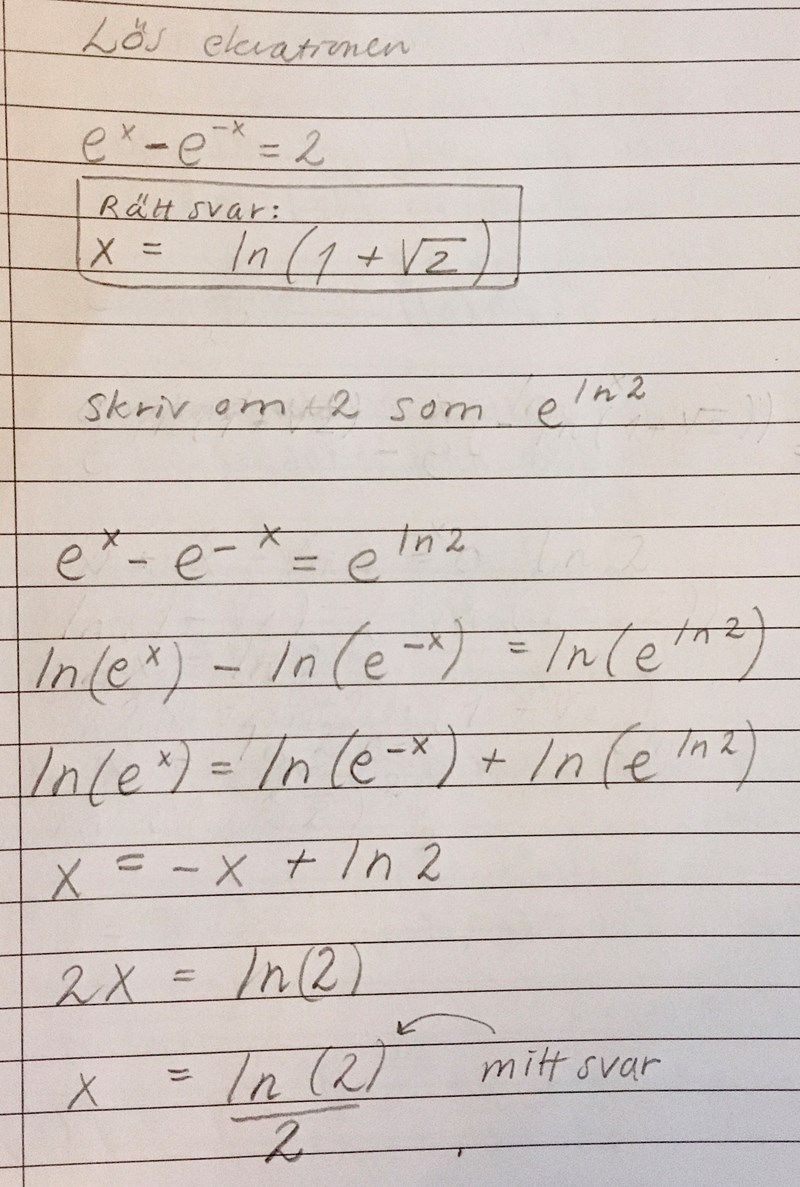 Lös ekvationen
e^x - e^-x = 2
Rätt svar:
x = ln(1 + √2)
Skriv om 2 som e^ln2
e^x - e^-x = e^ln2
ln(e^x) - ln(e^-x) = ln(e^ln2)
ln(e^x) = ln(e^-x) + ln(e^ln2)
x = -x + ln2
2x = ln(2)
x = ln(2)/2 mitt svar